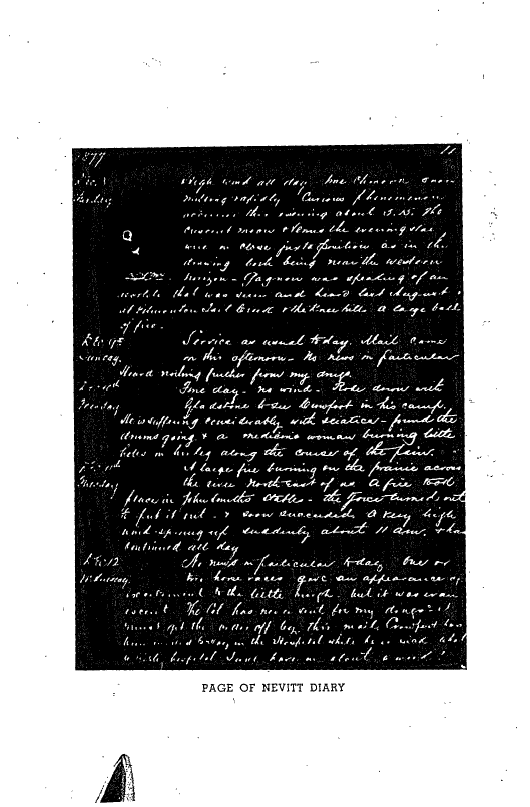 1877 11
High wind all day fine Chinook snow
melting rapidly Curious phenomenon
this evening about The
Crescent moon & Venus the evening star
were in close juxtaposition as in the
drawing both being near the western
horizon - Gagnon was speaking of an
that was seen and heard last August
at Edmonton Tail Creek & the Knee hills a large ball
of fire.
Dec 9th Service as usual today. Mail came
Sunday in this afternoon - No news in particular
Heard nothing further from my
Dec 10th Fine day - no wind - Rode down with
Gladstone to see Crowfoot in his camp.
He is suffering considerably with sciatica - found the
drums going & a medicine woman burning little
holes in his leg along the course of the pain.
Dec 11th A large fire burning on the prairie across
Tuesday the river North East of us A fire took
place in John Smiths stables - the force turned out
to put it out - & soon succeeded. A very high
wind sprung up suddenly about 11 am, & has
continued all day
Dec 12 No news in particular today one or
Wednesday two horse races gave an appearance of
excitement to the little but it was
The Col has never sent for my
must get the order off by this mail. Crowfoot has
been in the Hospital while he is sick
hospital I have in about a week!
PAGE OF NEVITT DIARY